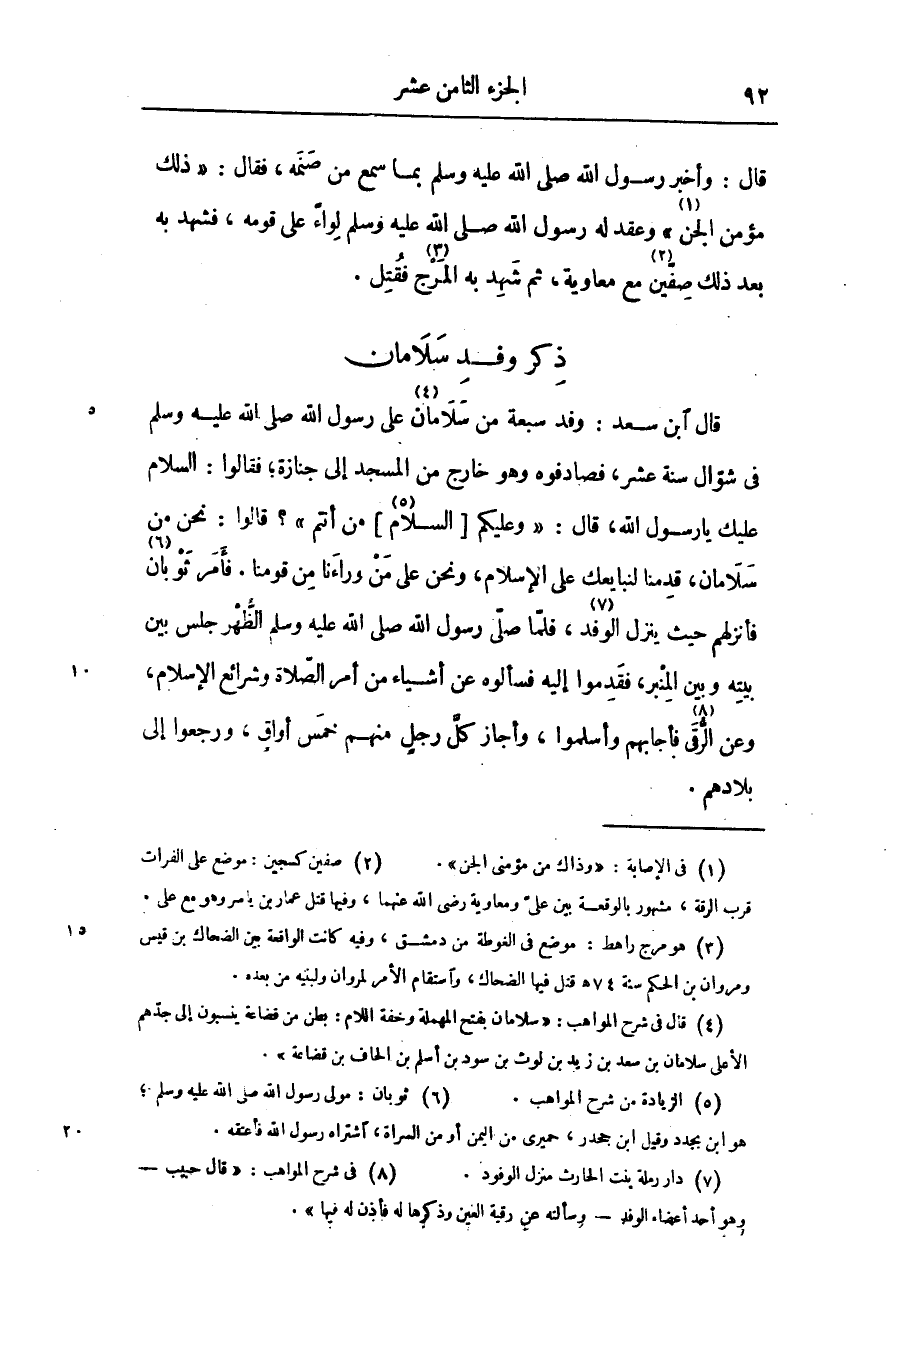 ٩٢
الجزء الثامن عشر
قال : وأخبر رســول الله صلى الله عليه وسلم بمــا سمع من صَنَمَه ، فقال : « ذلك
مؤمن الجن (١) » وعقد له رسول الله صــلى الله عليه وسلم لِواءً على قومه ، فشهد به
بعد ذلك صِفّين (٢) مع معاوية ، ثم شَهِد به المَرْج (٣) فقُتِل .
ذِكر وفــدِ سَلَامان
قال آبن ســعد : وفد سبعة من سَلَامان (٤) على رسول الله صلى الله عليــه وسلم
٥
فى شوّال سنة عشر ، فصادفوه وهو خارج من المسجد إلى جنازة ؛ فقالوا : السلام
عليك يارســول الله ، قال : « وعليكم [ الســلام ] (٥) من أنتم » ؟ قالوا : نحن من
سَلَامان ، قدِمنا لنبايعك على الإسلام ، ونحن على مَنْ وراءَنا مِن قومنا . فأَمَر ثَوْبان (٦)
فأنزلهم حيث ينزل الوفد (٧) ، فلمّا صلّى رسول الله صلى الله عليه وسلم الظُّهْر جلس بين
بيتِه وبين المِنْبر ، فقَدِموا إليه فسألوه عن أشــياء من أمر الصّلاة وشرائع الإسلام ،
١٠
وعن الرُّقَى (٨) فأجابهم وأسلموا ، وأجاز كلَّ رجلٍ منهــم خمَس أواقٍ ، ورجعوا إلى
بلادهم .
(١) فى الإصابة : «وذاك من مؤمنى الجن» . (٢) صفين كسجين : موضع على الفرات
قرب الرقة ، مشهور بالوقعــة بين علىّ ومعاوية رضى الله عنهما ، وفيها قتل عمار بن ياسر وهو مع على .
(٣) هو مرج راهط : موضع فى الغوطة من دمشــق ، وفيه كانت الواقعة بين الضحاك بن قيس
١٥
ومروان بن الحكم سنة ٧٤ ه قتل فيها الضحاك ، وآستقام الأمر لمروان ولبنيه من بعده .
(٤) قال فى شرح المواهب : «سلامان بفتح المهملة وخفة اللام : بطن من قضاعة ينسبون إلى جدّهم
الأعلى سلامان بن سعد بن زيد بن لوث بن سود بن أسلم بن الحاف بن قضاعة » .
(٥) الزيادة من شرح المواهب . (٦) ثوبان : مولى رسول الله صلى الله عليه وسلم ؛
هو ابن بجدد وقيل ابن جحدر ، حميرى من اليمن أو من السراة ، آشتراه رسول الله فأعتقه .
٢٠
(٧) دار رملة بنت الحارث منزل الوفود . (٨) فى شرح المواهب : « قال حبيب —
وهو أحد أعضاء الوفد — وسألته عن رقية العين وذكرها له فأذن له فيها » .